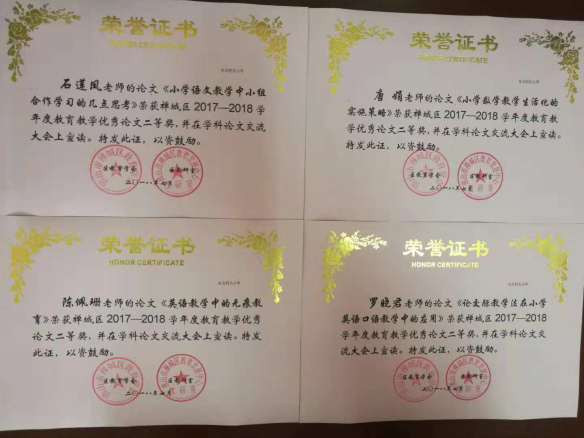 荣誉证书
HONOR CERTIFICATE
石莲凤老师的论文《小学语文教学中小组
合作学习的几点思考》荣获禅城区2017—2018学
年度教育教学优秀论文二等奖,并在学科论文交流
大会上宣读。特发此证,以资鼓励。
区教育学会
区教研室
二〇一八年七月
荣誉证书
HONOR CERTIFICATE
唐娟老师的论文《小学数学教学生活化的
实施策略》荣获禅城区2017—2018学
年度教育教学优秀论文二等奖,并在学科论文交流
大会上宣读。特发此证,以资鼓励。
区教育学会
区教研室
二〇一八年七月
荣誉证书
HONOR CERTIFICATE
陈佩珊老师的论文《英语教学中的无痕教
育》荣获禅城区2017—2018学年度教育教学优秀
论文二等奖,并在学科论文交流大会上宣读。特发
此证,以资鼓励。
区教育学会
区教研室
二〇一八年七月
荣誉证书
HONOR CERTIFICATE
罗晓君老师的论文《论交际教学法在小学
英语口语教学中的应用》荣获禅城区2017—2018
学年度教育教学优秀论文二等奖,并在学科论文交
流大会上宣读。特发此证,以资鼓励。
区教育学会
区教研室
二〇一八年七月